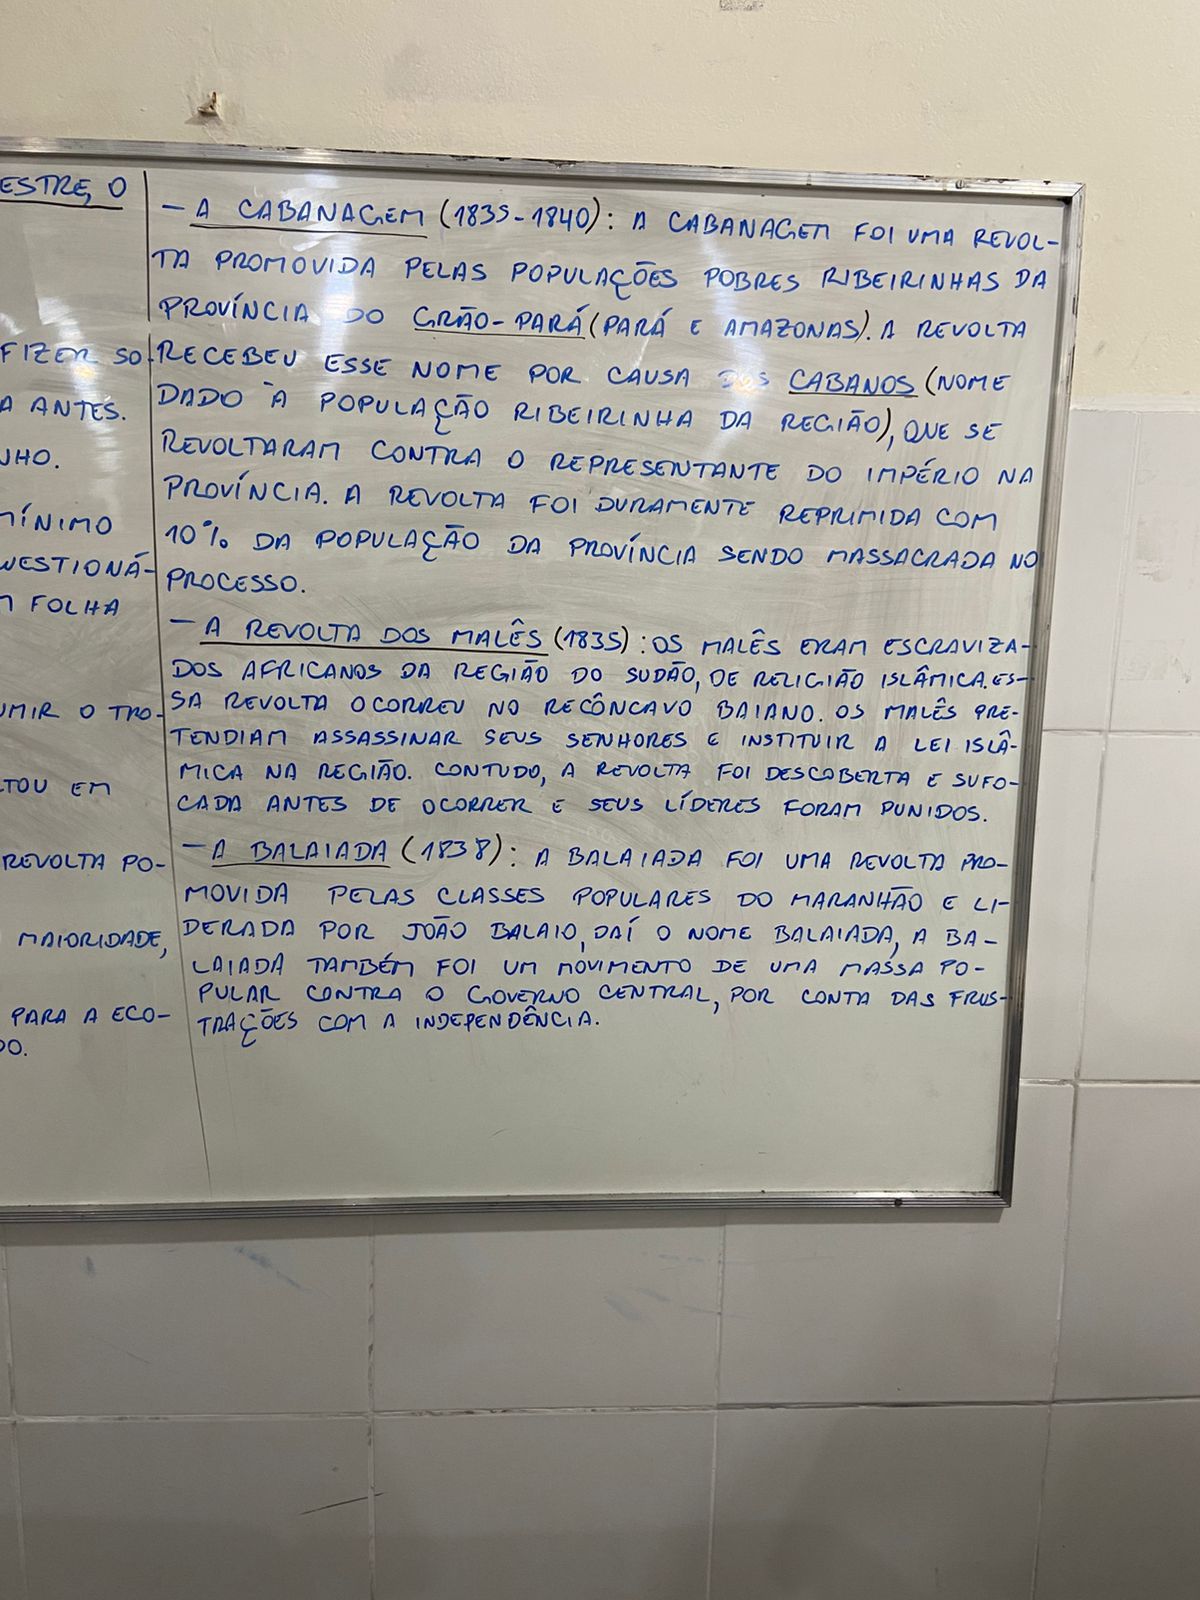 ESTRE, O
FIZER SO-
A ANTES.
NHO.
MÍNIMO
UESTIONÁ-
M FOLHA
UMIR O TRO-
TOU EM
REVOLTA PO-
MAIORIDADE,
PARA A ECO-
DO.
- A CABANAGEM (1835-1840): A CABANAGEM FOI UMA REVOL-
TA PROMOVIDA PELAS POPULAÇÕES POBRES RIBEIRINHAS DA
PROVÍNCIA DO GRÃO-PARÁ (PARÁ E AMAZONAS). A REVOLTA
RECEBEU ESSE NOME POR CAUSA DOS CABANOS (NOME
DADO À POPULAÇÃO RIBEIRINHA DA REGIÃO), QUE SE
REVOLTARAM CONTRA O REPRESENTANTE DO IMPÉRIO NA
PROVÍNCIA. A REVOLTA FOI DURAMENTE REPRIMIDA COM
10% DA POPULAÇÃO DA PROVÍNCIA SENDO MASSACRADA NO
PROCESSO.
- A REVOLTA DOS MALÊS (1835): OS MALÊS ERAM ESCRAVIZA-
DOS AFRICANOS DA REGIÃO DO SUDÃO, DE RELIGIÃO ISLÂMICA. ES-
SA REVOLTA OCORREU NO RECÔNCAVO BAIANO. OS MALÊS PRE-
TENDIAM ASSASSINAR SEUS SENHORES E INSTITUIR A LEI ISLÂ-
MICA NA REGIÃO. CONTUDO, A REVOLTA FOI DESCOBERTA E SUFO-
CADA ANTES DE OCORRER E SEUS LÍDERES FORAM PUNIDOS.
- A BALAIADA (1838): A BALAIADA FOI UMA REVOLTA PRO-
MOVIDA PELAS CLASSES POPULARES DO MARANHÃO E LI-
DERADA POR JOÃO BALAIO, DAÍ O NOME BALAIADA, A BA-
LAIADA TAMBÉM FOI UM MOVIMENTO DE UMA MASSA PO-
PULAR CONTRA O GOVERNO CENTRAL, POR CONTA DAS FRUS-
TRAÇÕES COM A INDEPENDÊNCIA.